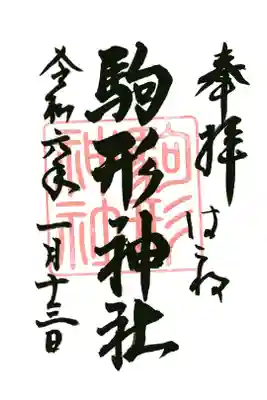 奉拝
はこね
駒形神社
駒形
神社
令和六年一月十三日